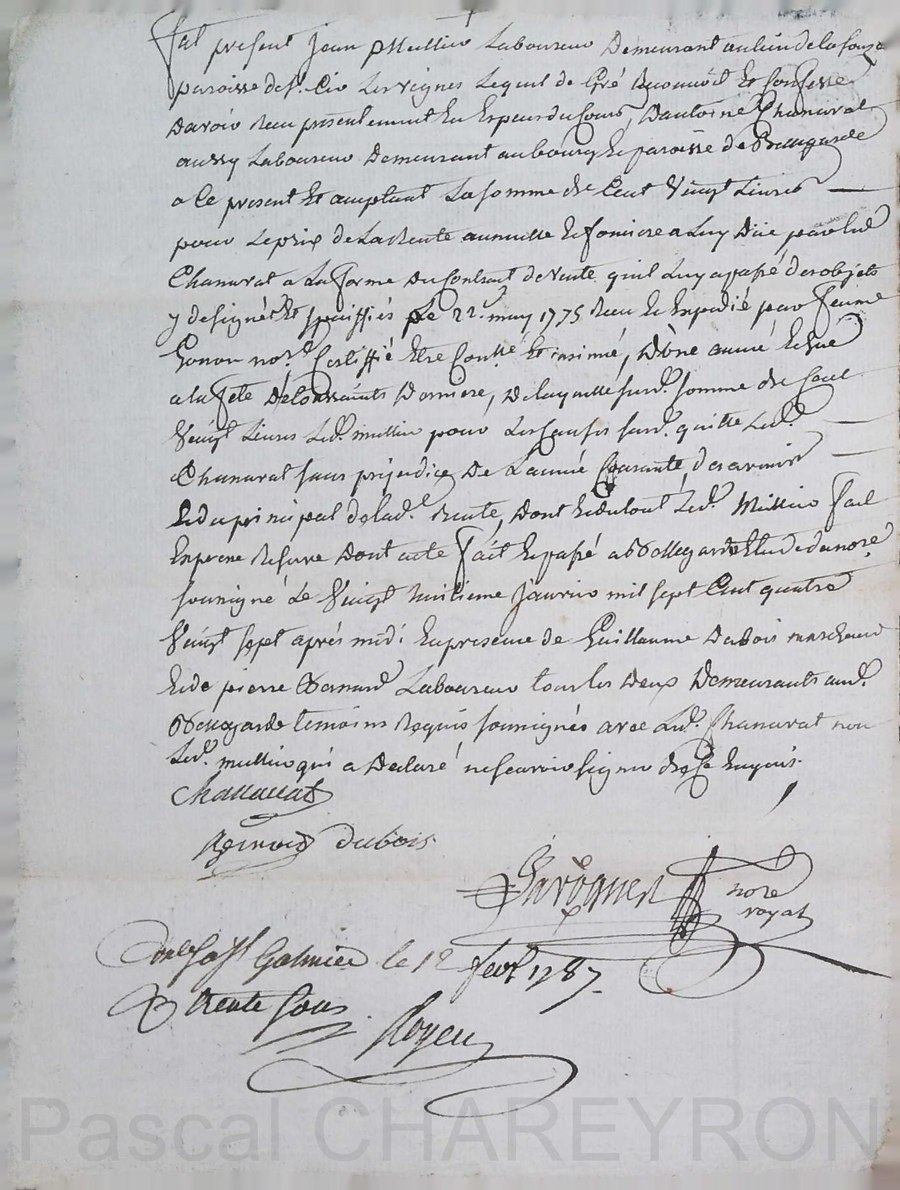 fut présent Jean Mullier Laboureur Demeurant au lieu de la
paroisse de St. Cir Les vignes Lequel de Gré Reconnoit et Confesse
Davoir Reçu présentement En Espèces du Cours, D'antoine Chanavat
aussy Laboureur Demeurant au bourg et paroisse de Bellegarde
a ce présent Et acceptant La Somme de Cent Vingt Livres
pour Le prix de La Rente annuelle et foncière a Luy Düe par led.
Chanavat a La forme Du Contrat de vente qu'il Luy a passé des objets
y designés Et spéciffiés Le 22e. may 1775 Reçu Et Expedié par
Gonon nore. Certiffié Etre Contlé Et insinué, D'Une année Echüe
a la fête De Toussaints Dernière, De laquelle susd. somme de Cent
Vingt Livres Led. mullier pour Les Causes susd. quitte Led.
Chanavat sans préjudice De L'année Courante, des avenir
Et du principal de lad. Rente, Dont Et du tout Led. Mullier fait
Expresse Reserve Dont acte fait Et passé a Bellegarde Etude du nore.
soussigné Le Vingt huitieme Janvier mil sept Cent quatre
Vingt sept après midi En présence de Guillaume Dubois marchand
Et de pierre Bernard Laboureur tous les Deux Demeurants aud.
Bellegarde temoins Requis soussignés avec Led. Chanavat non
Led. mullier qui a Declaré ne scavoir signer de ce Enquis.
Chanavat
Bernard dubois
nore
royal
Conlé a St Galmier le 12 fevr 1787.
R trente sous.
Royeu
Pascal CHAREYRON